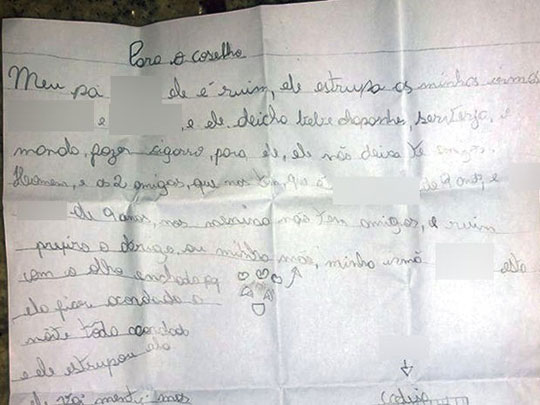 Para o coselho
Meu pa ele é ruim, ele estrupa as minhas irmas
e , e ele deicha bebe chapanhe, serverja, e
manda, fazer sigarro, para ele, ele não deixa te amigos.
Homem, e as 2 amigas, que nos tem, de 9 anos, e
de 9 anos, nos meninas não tem amigos, e ruim
prifiro o abrigo, ou minha mãe, minha irmã esta
com o olho enchado pq
ela ficou acordada a
noite toda acordada
e ele estrupou ela
ele vai menti